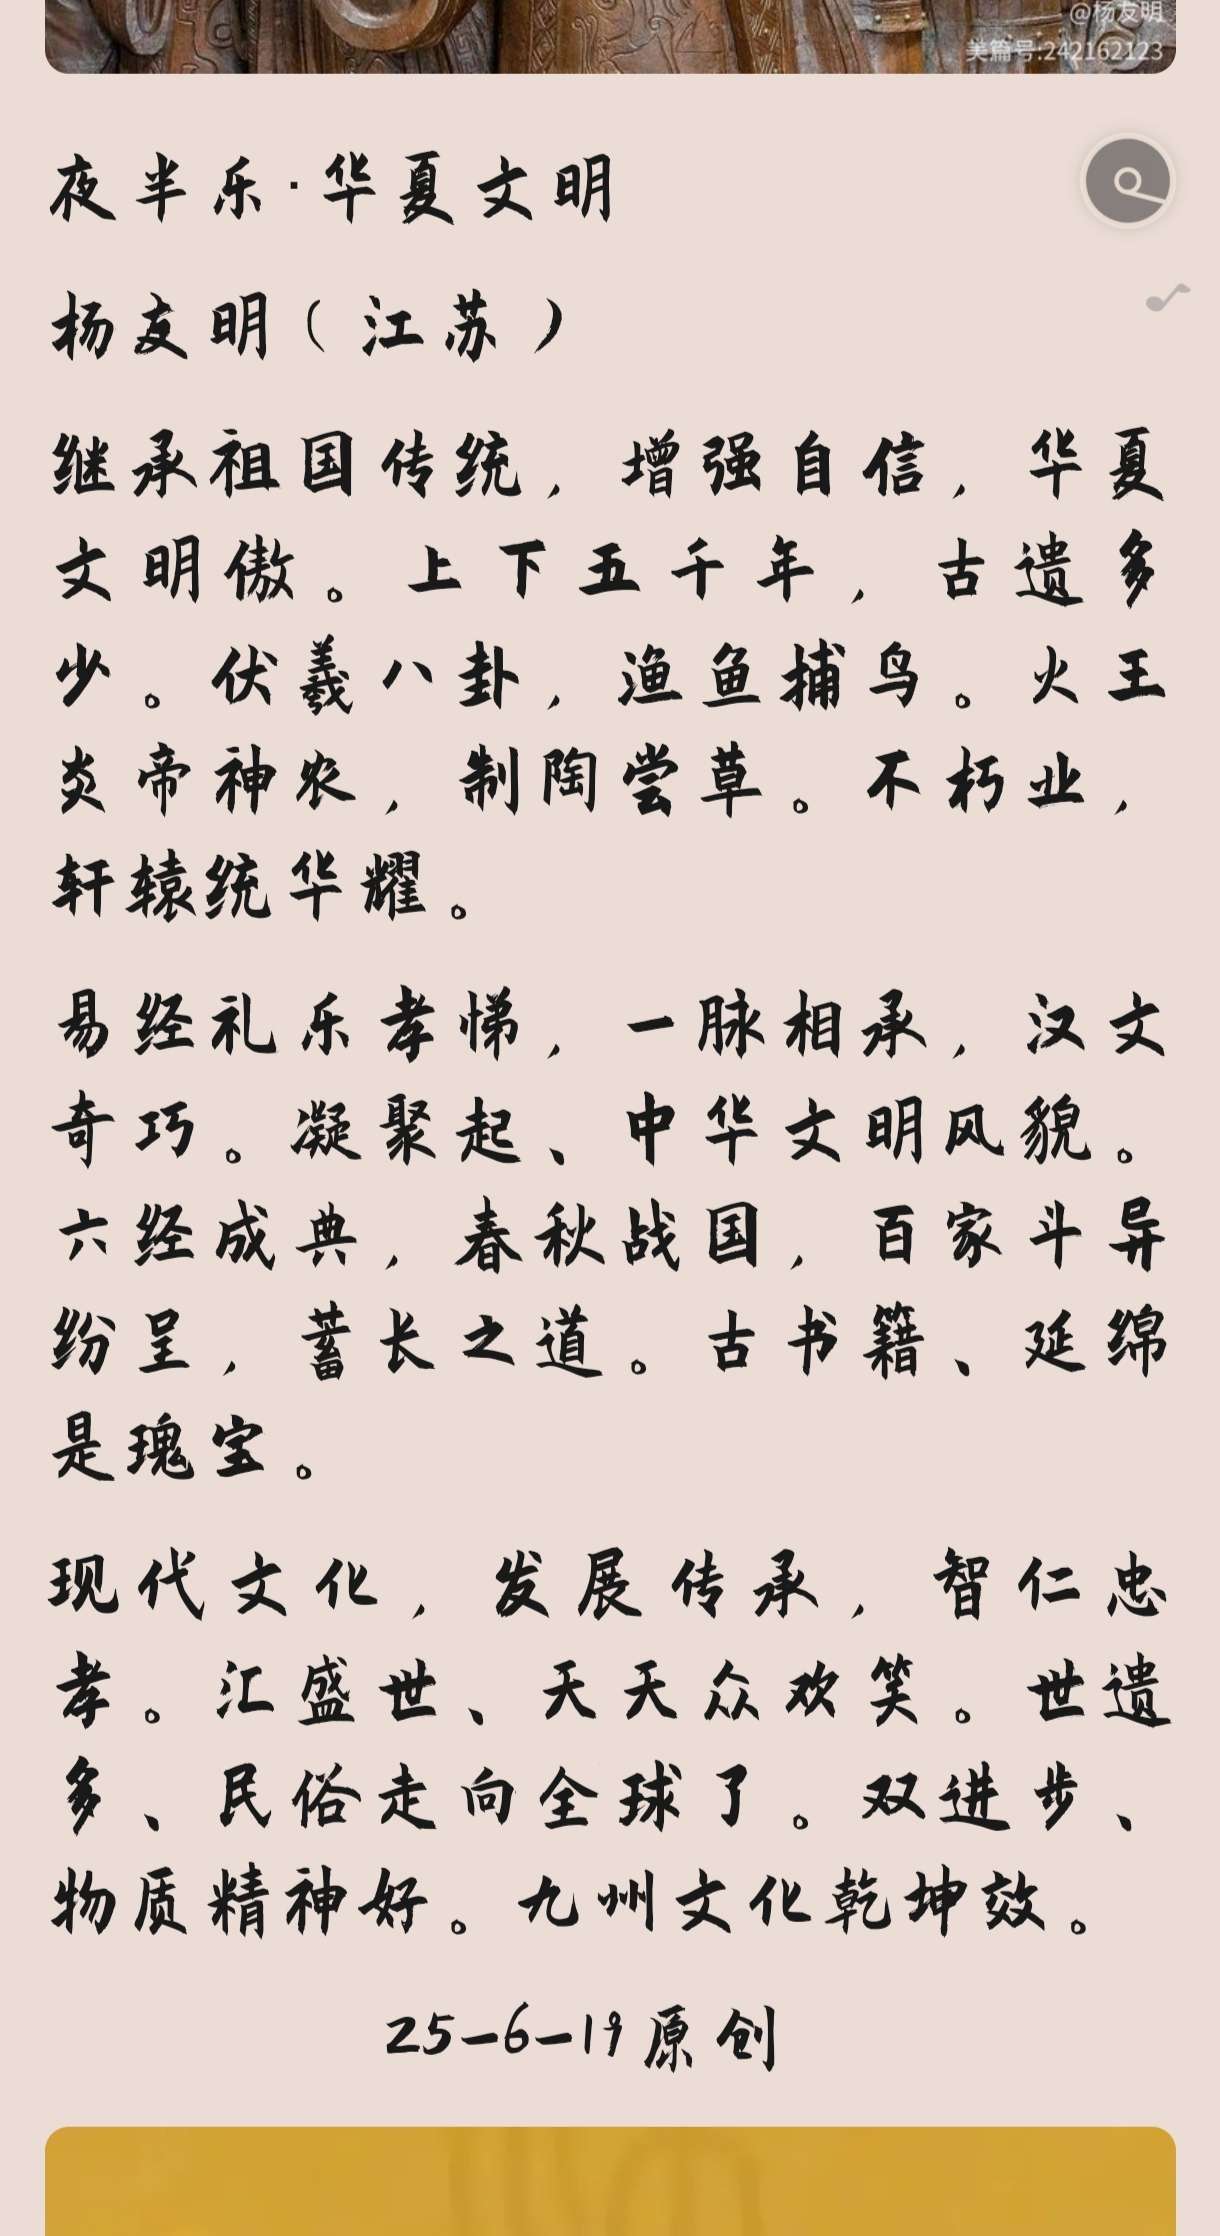 @杨友明
美篇号:242162123
夜半乐·华夏文明
杨友明（江苏）
继承祖国传统，增强自信，华夏
文明傲。上下五千年，古遗多
少。伏羲八卦，渔鱼捕鸟。火王
炎帝神农，制陶尝草。不朽业，
轩辕统华耀。
易经礼乐孝悌，一脉相承，汉文
奇巧。凝聚起、中华文明风貌。
六经成典，春秋战国，百家斗异
纷呈，蓄长之道。古书籍、延绵
是瑰宝。
现代文化，发展传承，智仁忠
孝。汇盛世、天天众欢笑。世遗
多、民俗走向全球了。双进步、
物质精神好。九州文化乾坤效。
25-6-19原创